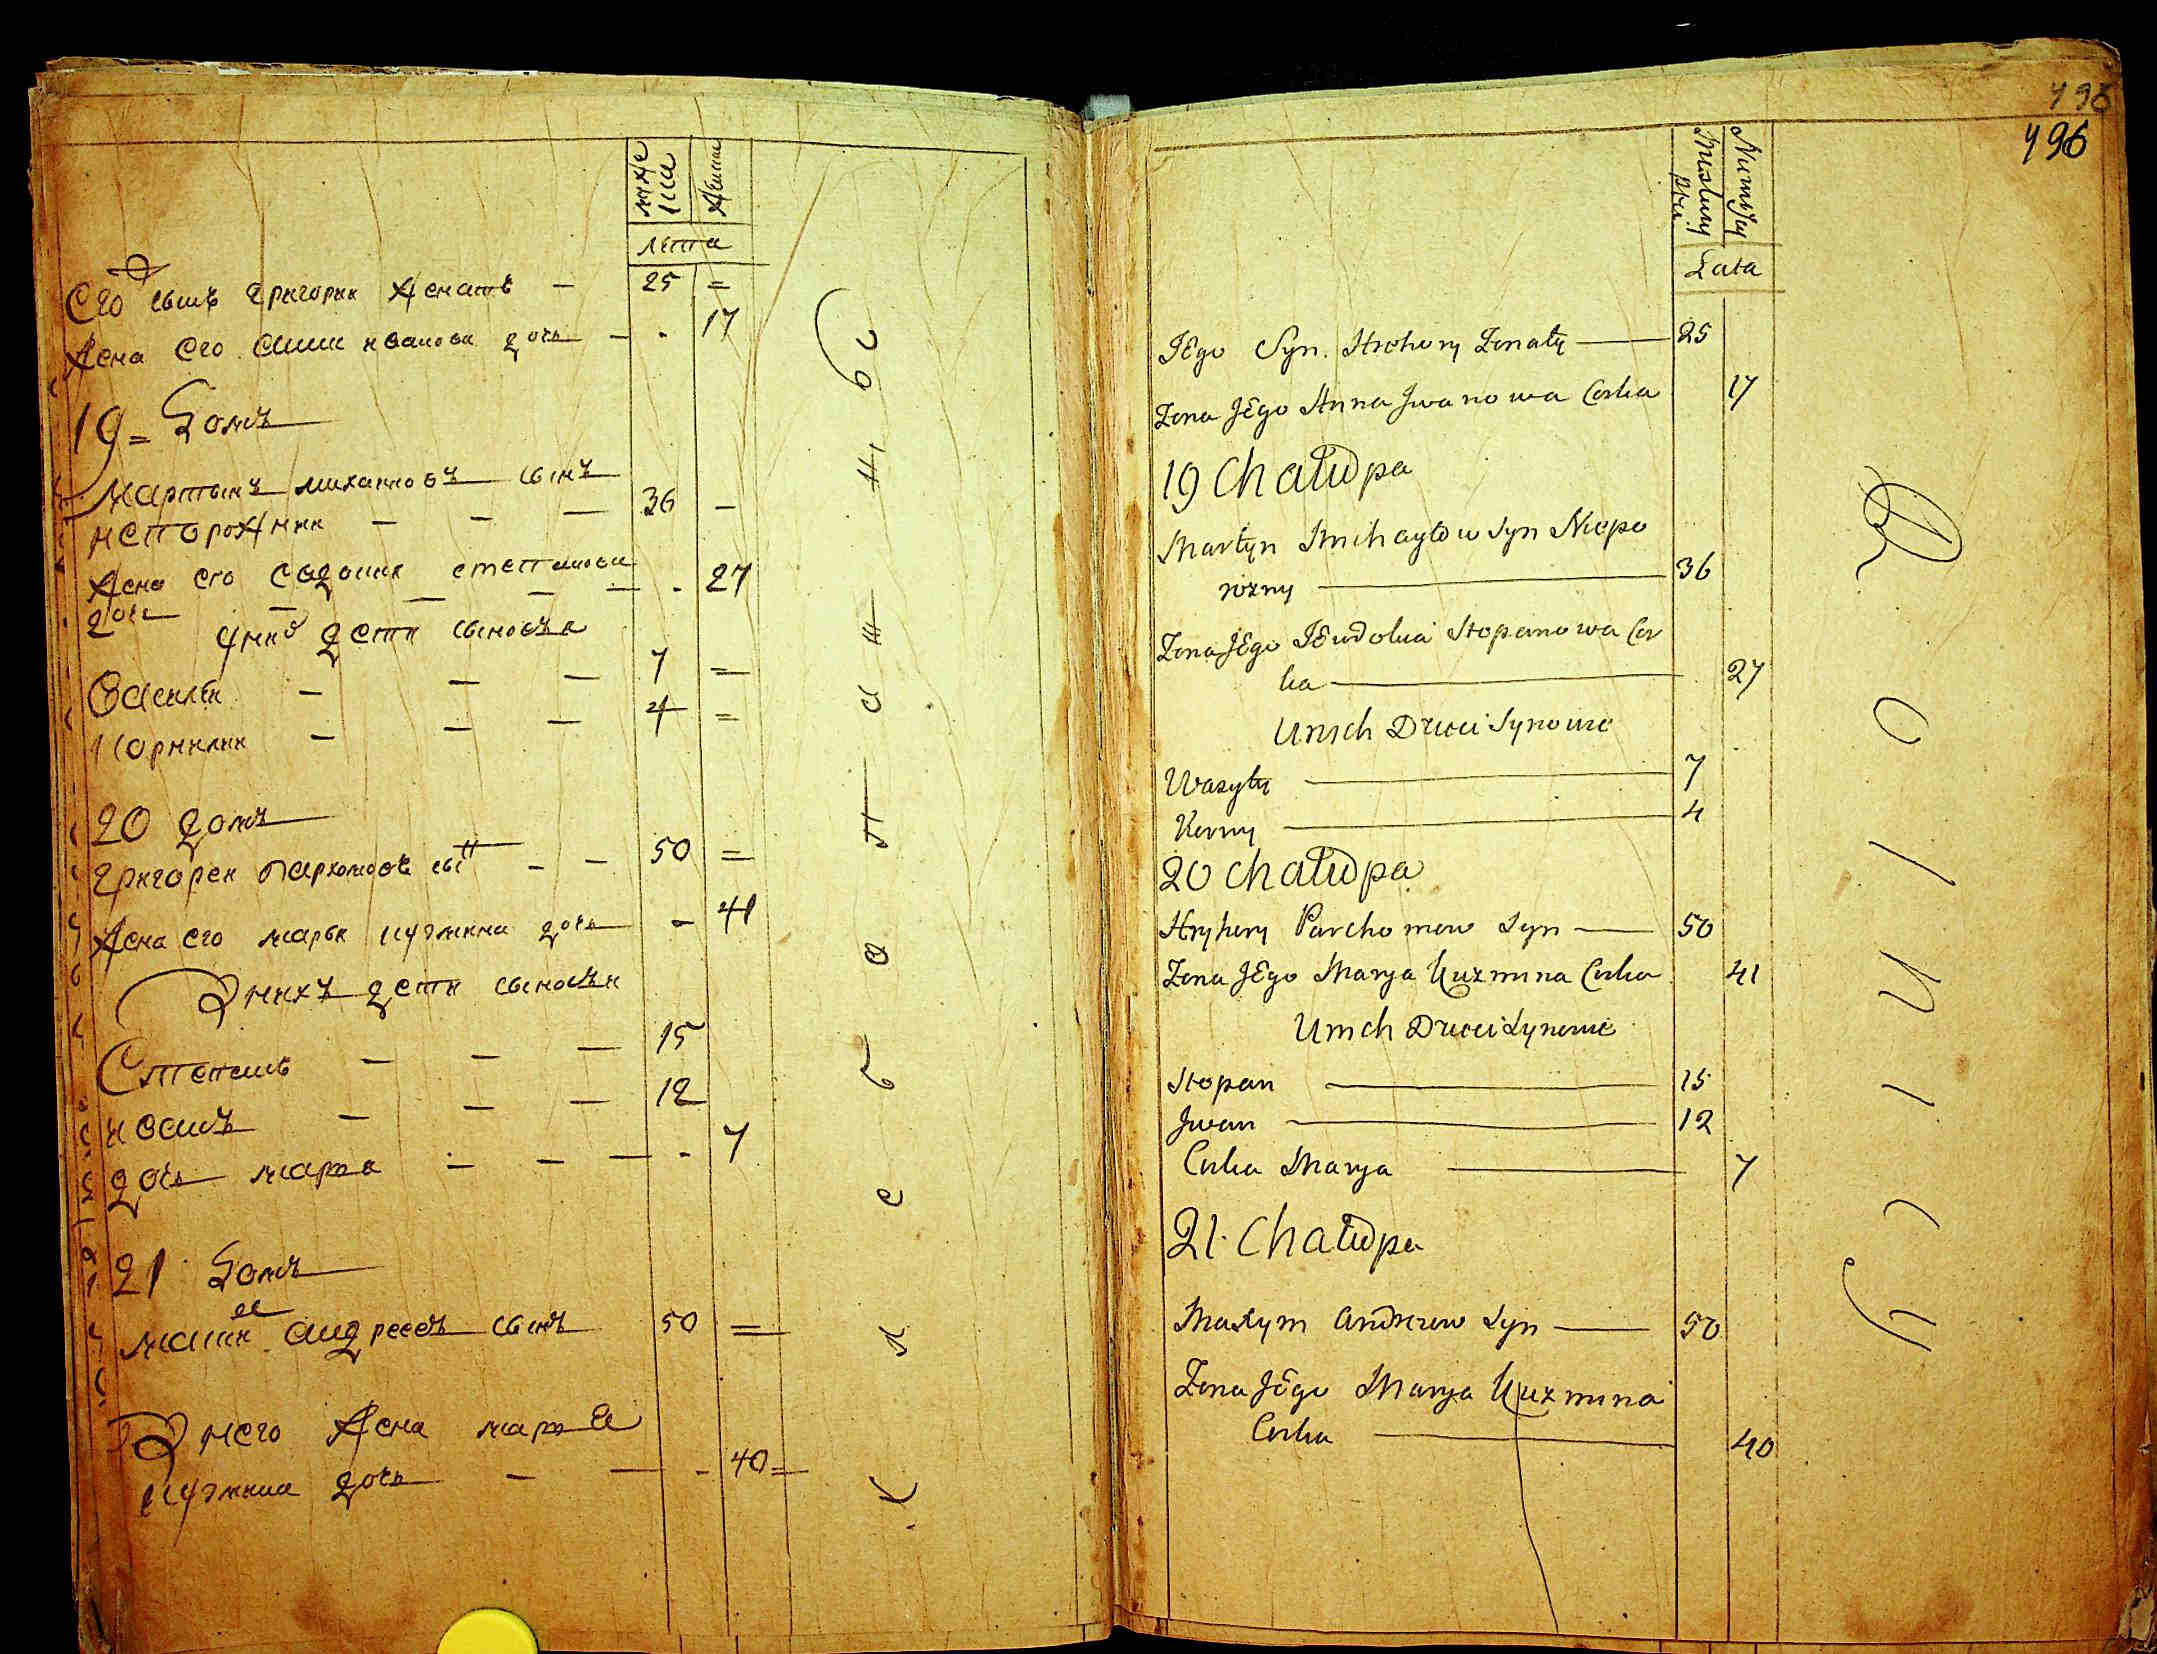 муже
ска
Женска
лета
Его сынъ Григории Женатъ — 25 =
Жена Его Анна иванова дочь — - 17
19 = Домъ
Мартынъ михаиловъ сынъ
непорожнии — — — 36 —
Жена его Евдокия степанова
дочь — — — — - 27
У нихъ дети сыновья
Василеи — — — 7 =
Корнилии — — — 4 =
20 домъ
Григореи Пархомовъ сынъ — — 50 =
Жена его марья кузмина дочь - 41
У нихъ дети сыновья
Степанъ — — — 15
иванъ — — — 12
дочь марья — — — - 7
21 Домъ
андреевъ сынъ 50 =
У него Жена марья
кузмина дочь — — - 40 =
496
496
Lata
JEgo Syn Hrehory Zonaty — 25
Zona JEgo Anna Jwanowa Corka 17
19 Chałupa
Martyn Michayłow Syn Niepo
rozny — 36
Zona JEgo JEwdokia Stepanowa Cor
ka — 27
U nich Dzieci Synowie
Wasyly — 7
Korny — 4
20 Chałupa
Hryhory Parchomow Syn — 50
Zona JEgo Marya Kuzmina Corka 41
U nich Dzieci Synowie
Stepan — 15
Jwan — 12
Corka Marya — 7
21 Chałupa
Maxym Andreiew Syn — 50
Zona JEgo Marya Kuzmina
Corka — 40